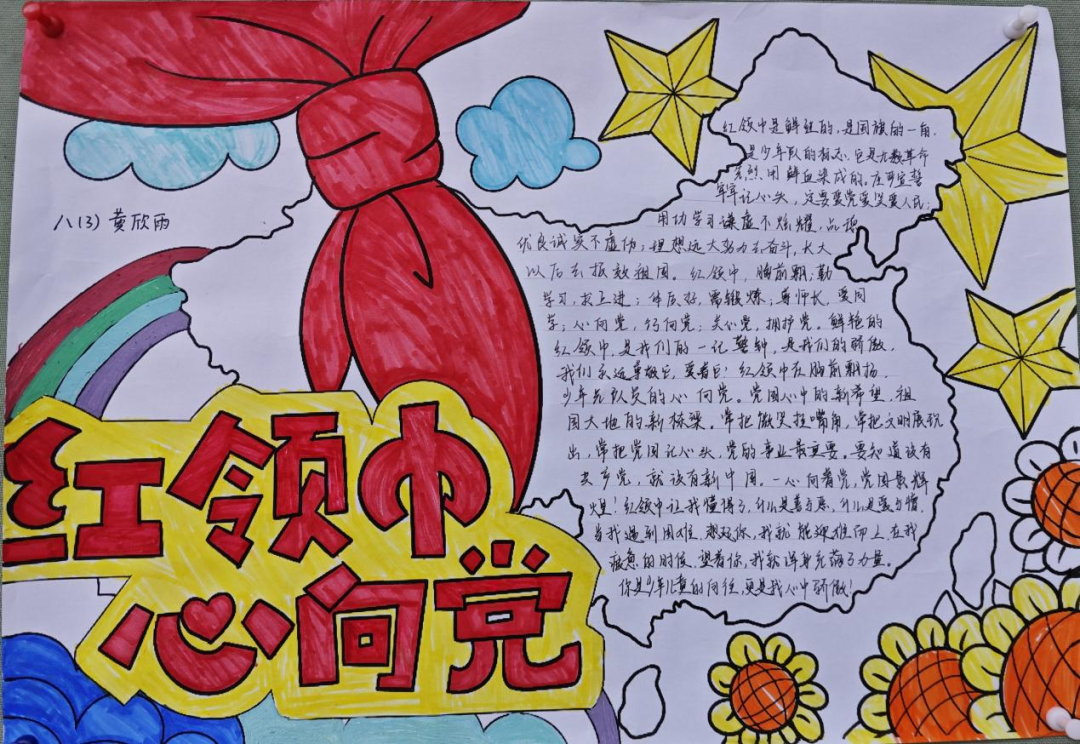 八(3) 黄欣雨
红领巾
心向党
红领巾是鲜红的,是国旗的一角,
是少年队的标志。它是无数革命
先烈用鲜血染成的。庄严宣誓
牢记心头,定要爱党爱国爱人民;
用功学习谦虚不炫耀,品德
优良诚实不虚伪;理想远大努力去奋斗,长大
以后去报效祖国。红领巾,胸前飘;勤
学习,求上进;体质好,需锻炼;尊师长,爱同
学;心向党,行向党;关心党,拥护党。鲜艳的
红领巾,是我们的一记警钟,是我们的骄傲,
我们永远尊敬它,爱着它!红领巾在胸前飘扬,
少年先队员的心向党。党国心中的新希望,祖
国大地的新栋梁。常把微笑挂嘴角,常把文明展现
出,常把党国记心头,党的事业最重要。要知道没有
共产党,就没有新中国。一心向着党,党国最辉
煌!红领巾让我懂得了,什么是善与恶,什么是爱与憎,
当我遇到困难,想起你,我就能迎难而上在我
疲惫的时候,望着你,我就浑身充满了力量。
你是少年儿童的向往,更是我心中骄傲!